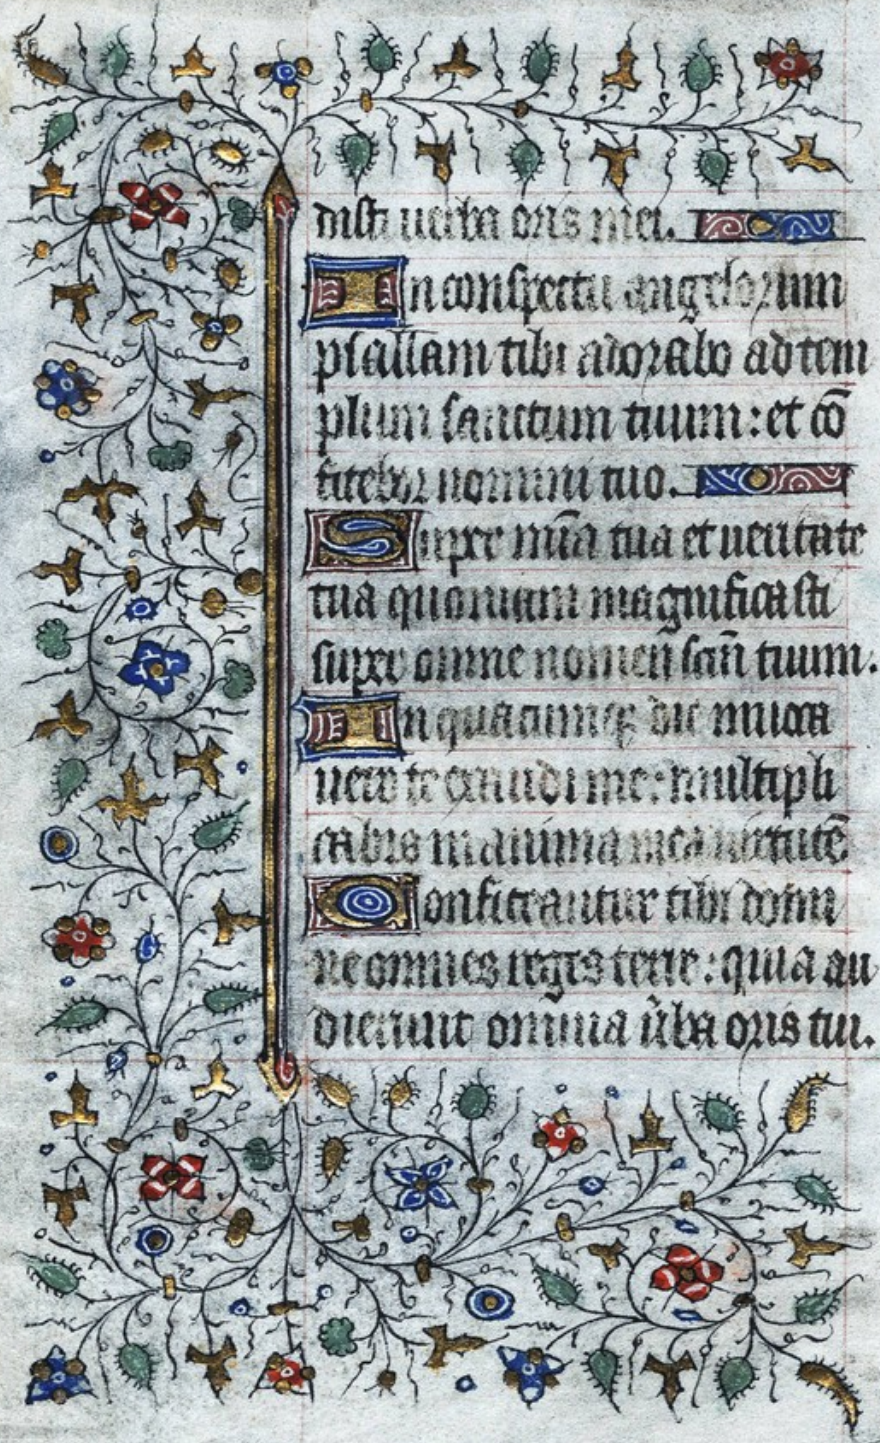 disti uerba oris mei.
In conspectu angelorum
psallam tibi adorabo ad tem
plum sanctum tuum: et cō
fitebor nomini tuo.
Super mīa tua et ueritate
tua quoniam magnificasti
super omne nomen scm̄ tuum.
In quacumqꝫ die inuoca
uero te exaudi me: multipli
cabis in anima mea uirtutē
Confiteantur tibi domi
ne omnes reges terre: quia au
dierunt omnia ūba oris tui.